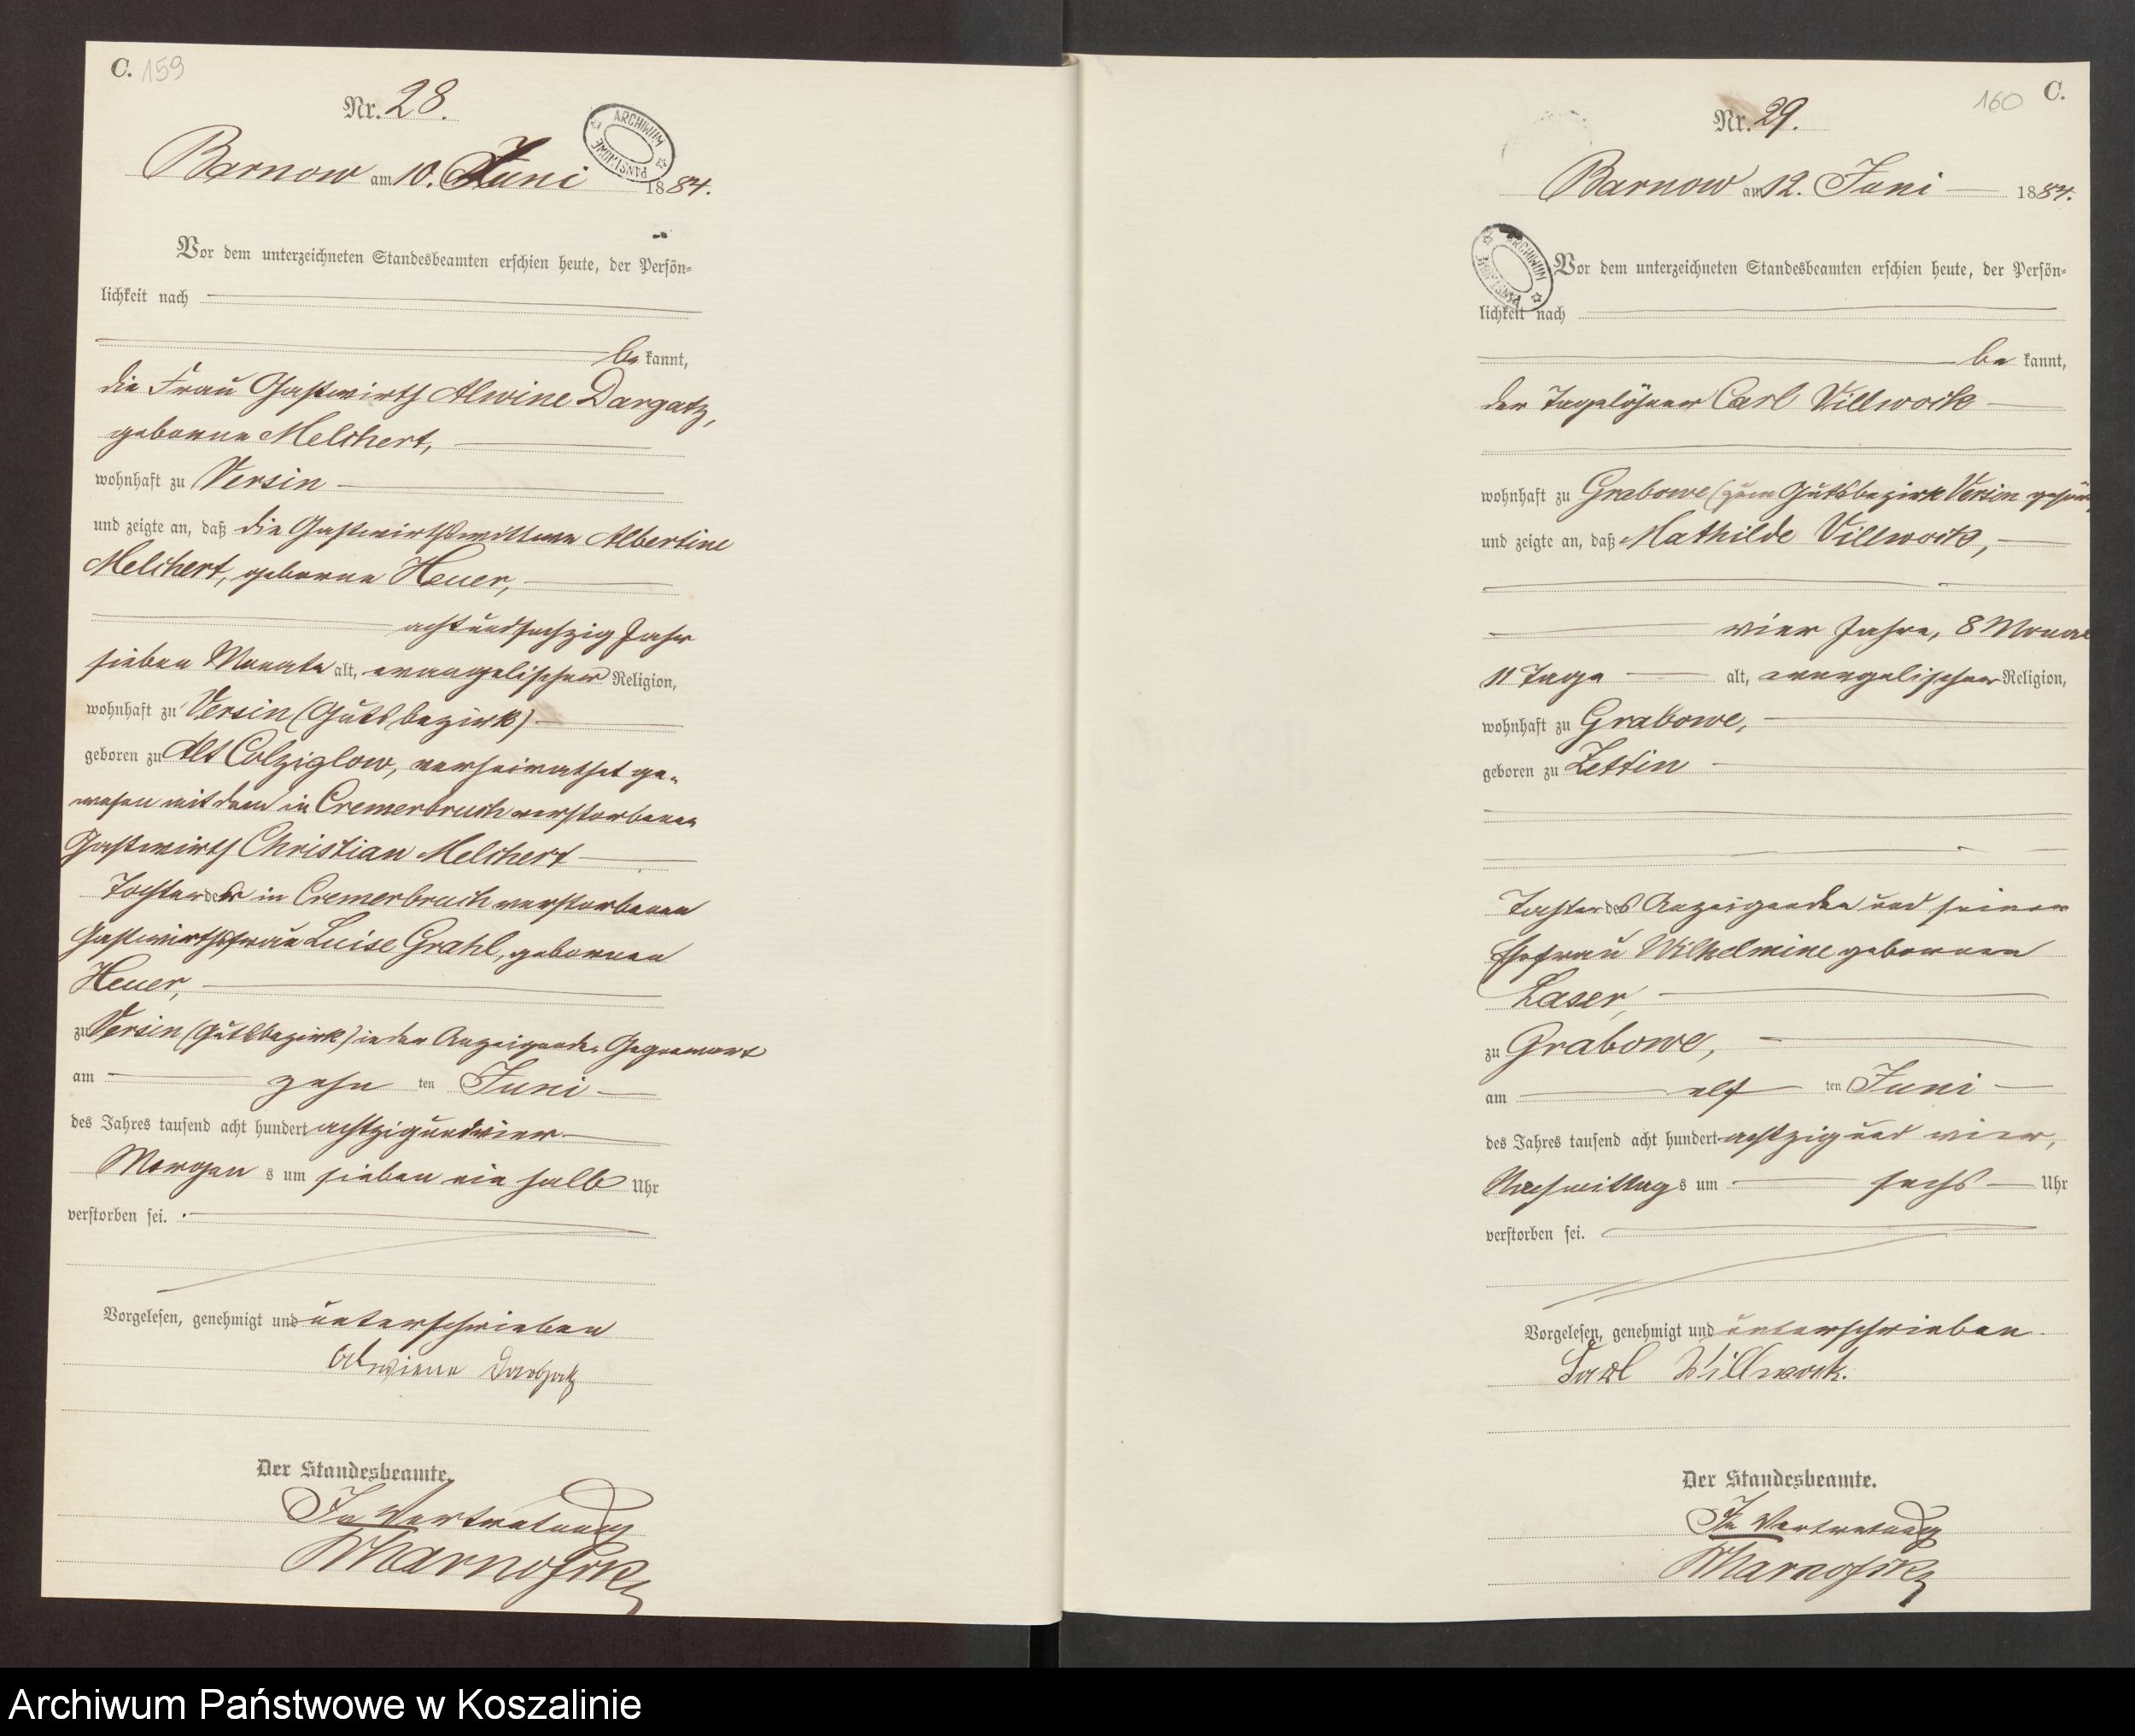 C. 159
Nr. 28.
ARCHIWUM PAŃSTWOWE
Barnow am 10. Juni 1884.
Vor dem unterzeichneten Standesbeamten erschien heute, der Persön-
lichkeit nach
be kannt,
die Frau Gastwirth Alwine Dargatz,
geborene Melchert,
wohnhaft zu Versin
und zeigte an, daß die Gastwirthswittwe Albertine
Melchert, geborene Heuer,
achtundsechzig Jahr
sieben Monate alt, evangelischer Religion,
wohnhaft zu Versin (Gutsbezirk)
geboren zu Alt Colziglow, verheirathet ge-
wesen mit dem in Cremerbruch verstorbenen
Gastwirth Christian Melchert
Tochter der in Cremerbruch verstorbenen
Gastwirthsfrau Luise Grahl, geborenen
Heuer,
zu Versin (Gutsbezirk) in der Anzeigende Gegenwart
am zehn ten Juni
des Jahres tausend acht hundert achtzigundvier
Morgen s um sieben ein halb Uhr
verstorben sei.
Vorgelesen, genehmigt und unterschrieben
Alwiene Dargatz
Der Standesbeamte.
In Vertretung
C. 160
Nr. 29.
Barnow am 12. Juni 1884.
ARCHIWUM PAŃSTWOWE
Vor dem unterzeichneten Standesbeamten erschien heute, der Persön-
lichkeit nach
be kannt,
der Tagelöhner Carl Villwock
wohnhaft zu Grabowe (zum Gutsbezirk Versin gehör
und zeigte an, daß Mathilde Villwock,
vier Jahre, 8 Monate
11 Tage alt, evangelischer Religion,
wohnhaft zu Grabowe,
geboren zu Zettin
Tochter des Anzeigenden und seiner
Ehefrau Wilhelmine geborenen
Laser,
zu Grabowe,
am elf ten Juni
des Jahres tausend acht hundert achtzig und vier,
Nachmittag s um sechs Uhr
verstorben sei.
Vorgelesen, genehmigt und unterschrieben
Carl Villwock.
Der Standesbeamte.
In Vertretung
Archiwum Państwowe w Koszalinie